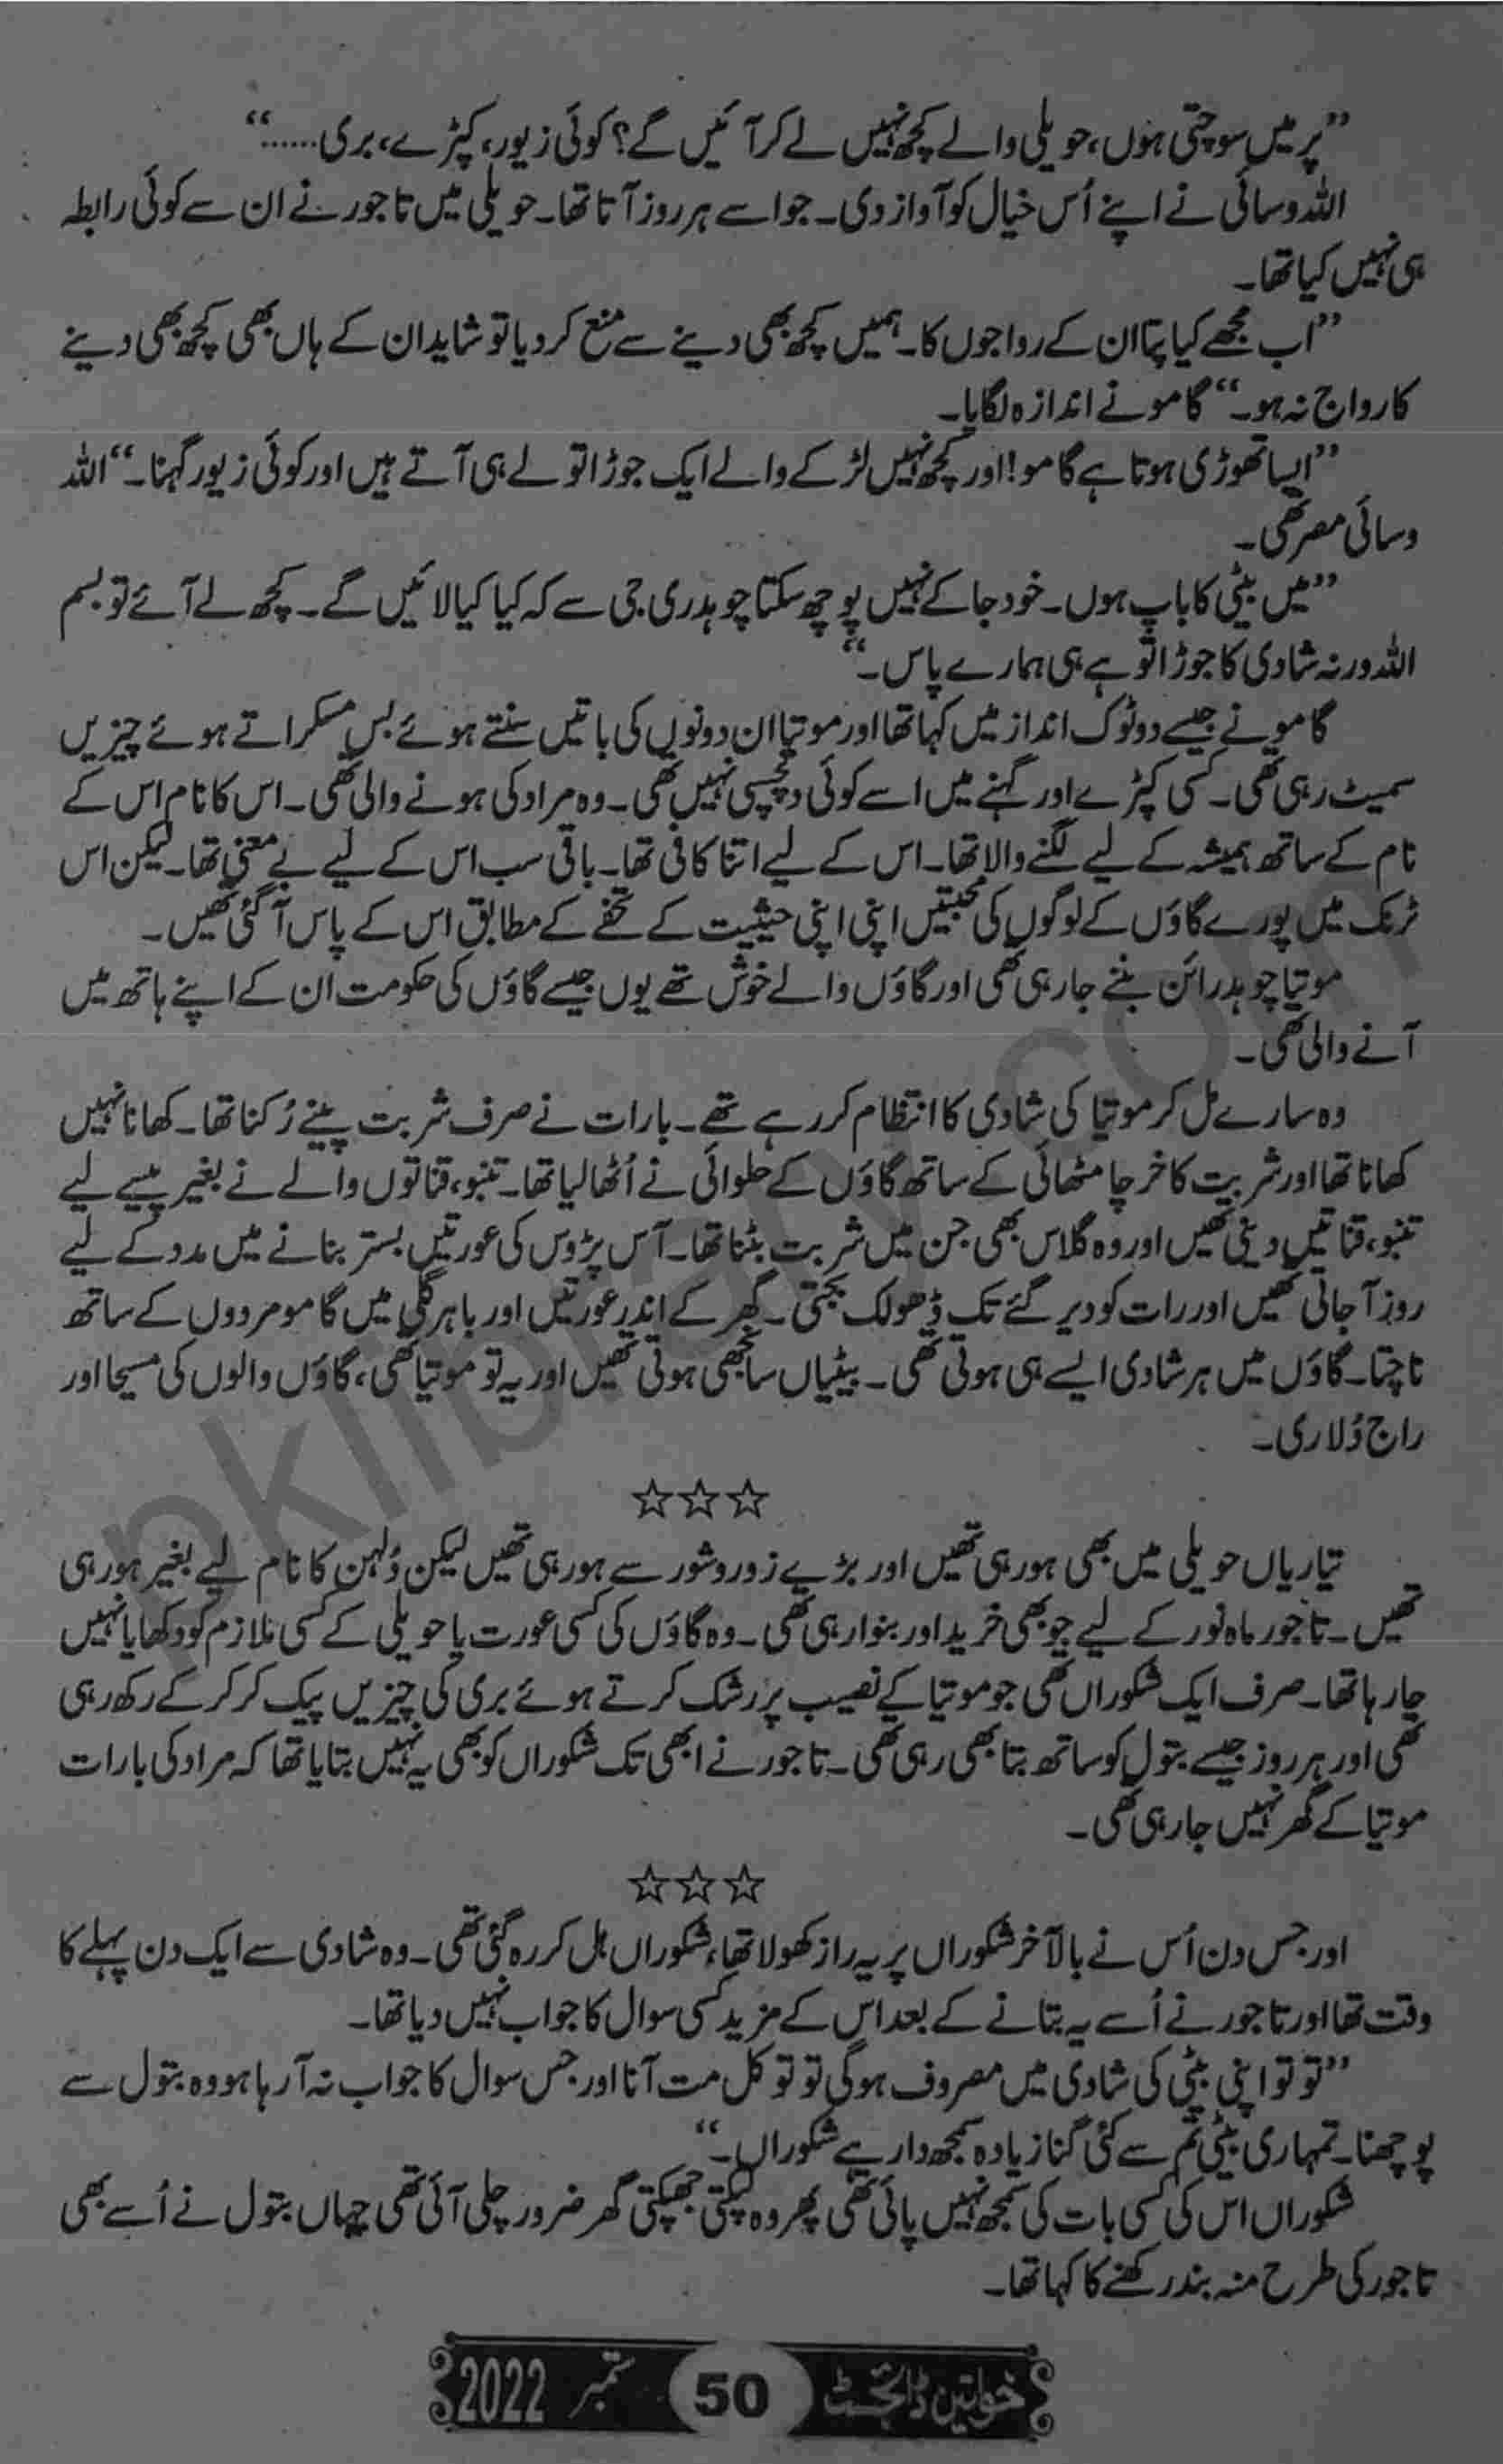 ”پر میں سوچتی ہوں، حویلی والے کچھ نہیں لے کر آئیں گے؟ کوئی زیور، کپڑے، بری......“
اللہ وسائی نے اپنے اُس خیال کو آواز دی۔ جو اسے ہر روز آتا تھا۔ حویلی میں تاجور نے ان سے کوئی رابطہ
ہی نہیں کیا تھا۔
”اب مجھے کیا پتا ان کے رواجوں کا۔ ہمیں کچھ بھی دینے سے منع کر دیا تو شاید ان کے ہاں بھی کچھ بھی دینے
کا رواج نہ ہو۔“ گامو نے اندازہ لگایا۔
”ایسا تھوڑی ہوتا ہے گامو! اور کچھ نہیں لڑکے والے ایک جوڑا تو لے ہی آتے ہیں اور کوئی زیور گہنا۔“ اللہ
وسائی مصر تھی۔
”میں بیٹی کا باپ ہوں۔ خود جا کے نہیں پوچھ سکتا چوہدری جی سے کہ کیا کیا لائیں گے۔ کچھ لے آئے تو بسم
اللہ ورنہ شادی کا جوڑا تو ہے ہی ہمارے پاس۔“
گامو نے جیسے دوٹوک انداز میں کہا تھا اور موتیا ان دونوں کی باتیں سنتے ہوئے بس مسکراتے ہوئے چیزیں
سمیٹ رہی تھی۔ کسی کپڑے اور گہنے میں اسے کوئی دلچسپی نہیں تھی۔ وہ مراد کی ہونے والی تھی۔ اس کا نام اس کے
نام کے ساتھ ہمیشہ کے لیے لگنے والا تھا۔ اس کے لیے اتنا کافی تھا۔ باقی سب اس کے لیے بے معنی تھا۔ لیکن اس
ٹرنک میں پورے گاؤں کے لوگوں کی محبتیں اپنی اپنی حیثیت کے تحفے کے مطابق اس کے پاس آ گئی تھیں۔
موتیا چوہدرائن بننے جا رہی تھی اور گاؤں والے خوش تھے یوں جیسے گاؤں کی حکومت ان کے اپنے ہاتھ میں
آنے والی تھی۔
وہ سارے مل کر موتیا کی شادی کا انتظام کر رہے تھے۔ بارات نے صرف شربت پینے رُکنا تھا۔ کھانا نہیں
کھانا تھا اور شربت کا خرچا مٹھائی کے ساتھ گاؤں کے حلوائی نے اُٹھا لیا تھا۔ تنبو، قناتوں والے نے بغیر پیسے لیے
تنبو، قناتیں دینی تھیں اور وہ گلاس بھی جن میں شربت بٹنا تھا۔ آس پڑوس کی عورتیں بستر بنانے میں مدد کے لیے
روز آ جاتی تھیں اور رات کو دیر گئے تک ڈھولک بجتی۔ گھر کے اندر عورتیں اور باہر گلی میں گامو مردوں کے ساتھ
ناچتا۔ گاؤں میں ہر شادی ایسے ہی ہوتی تھی۔ بیٹیاں سانجھی ہوتی تھیں اور یہ تو موتیا تھی، گاؤں والوں کی مسیحا اور
راج دُلاری۔
☆☆☆
تیاریاں حویلی میں بھی ہو رہی تھیں اور بڑے زور و شور سے ہو رہی تھیں لیکن دُلہن کا نام لیے بغیر ہو رہی
تھیں۔ تاجور ماہ نور کے لیے جو بھی خرید اور بنوا رہی تھی۔ وہ گاؤں کی کسی عورت یا حویلی کے کسی ملازم کو دکھایا نہیں
جا رہا تھا۔ صرف ایک شکوراں تھی جو موتیا کے نصیب پر رشک کرتے ہوئے بری کی چیزیں پیک کر کر کے رکھ رہی
تھی اور ہر روز جیسے بتول کو ساتھ بتا بھی رہی تھی۔ تاجور نے ابھی تک شکوراں کو بھی یہ نہیں بتایا تھا کہ مراد کی بارات
موتیا کے گھر نہیں جا رہی تھی۔
☆☆☆
اور جس دن اُس نے بالآخر شکوراں پر یہ راز کھولا تھا، شکوراں ہل کر رہ گئی تھی۔ وہ شادی سے ایک دن پہلے کا
وقت تھا اور تاجور نے اُسے یہ بتانے کے بعد اس کے مزید کسی سوال کا جواب نہیں دیا تھا۔
”تو تو اپنی بیٹی کی شادی میں مصروف ہوگی تو تو کل مت آنا اور جس سوال کا جواب نہ آ رہا ہو وہ بتول سے
پوچھنا۔ تمہاری بیٹی تم سے کئی گنا زیادہ سمجھ دار ہے شکوراں۔“
شکوراں اس کی کسی بات کی سمجھ نہیں پائی تھی پھر وہ لپکتی جھپکتی گھر ضرور چلی آئی تھی جہاں بتول نے اُسے بھی
تاجور کی طرح منہ بند رکھنے کا کہا تھا۔
خواتین ڈائجسٹ 50 ستمبر 2022
pklibrary.com